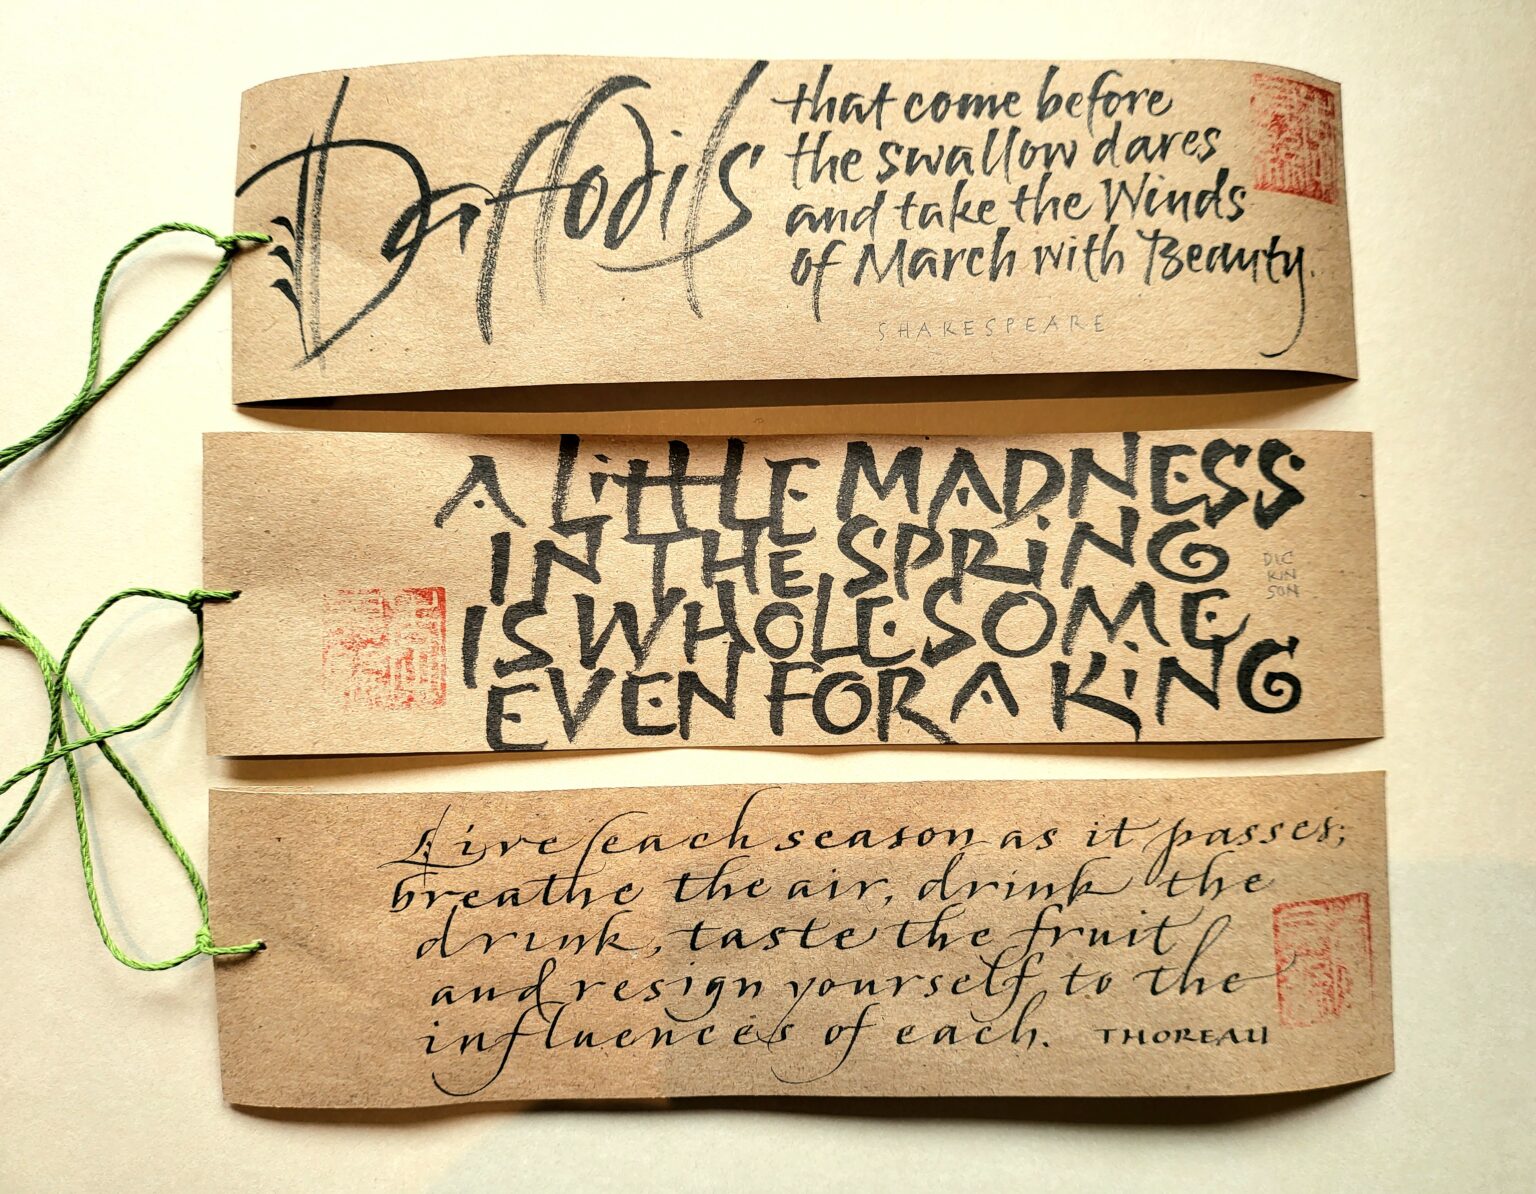 Daffodils that come before
the swallow dares
and take the Winds
of March with Beauty.
SHAKESPEARE
A LiTTLE MADNESS
IN THE SPRiNG
IS WHOLESOME
EVEN FOR A KiNG
DIC
KIN
SON
Live each season as it passes;
breathe the air, drink the
drink, taste the fruit
and resign yourself to the
influences of each. THOREAU